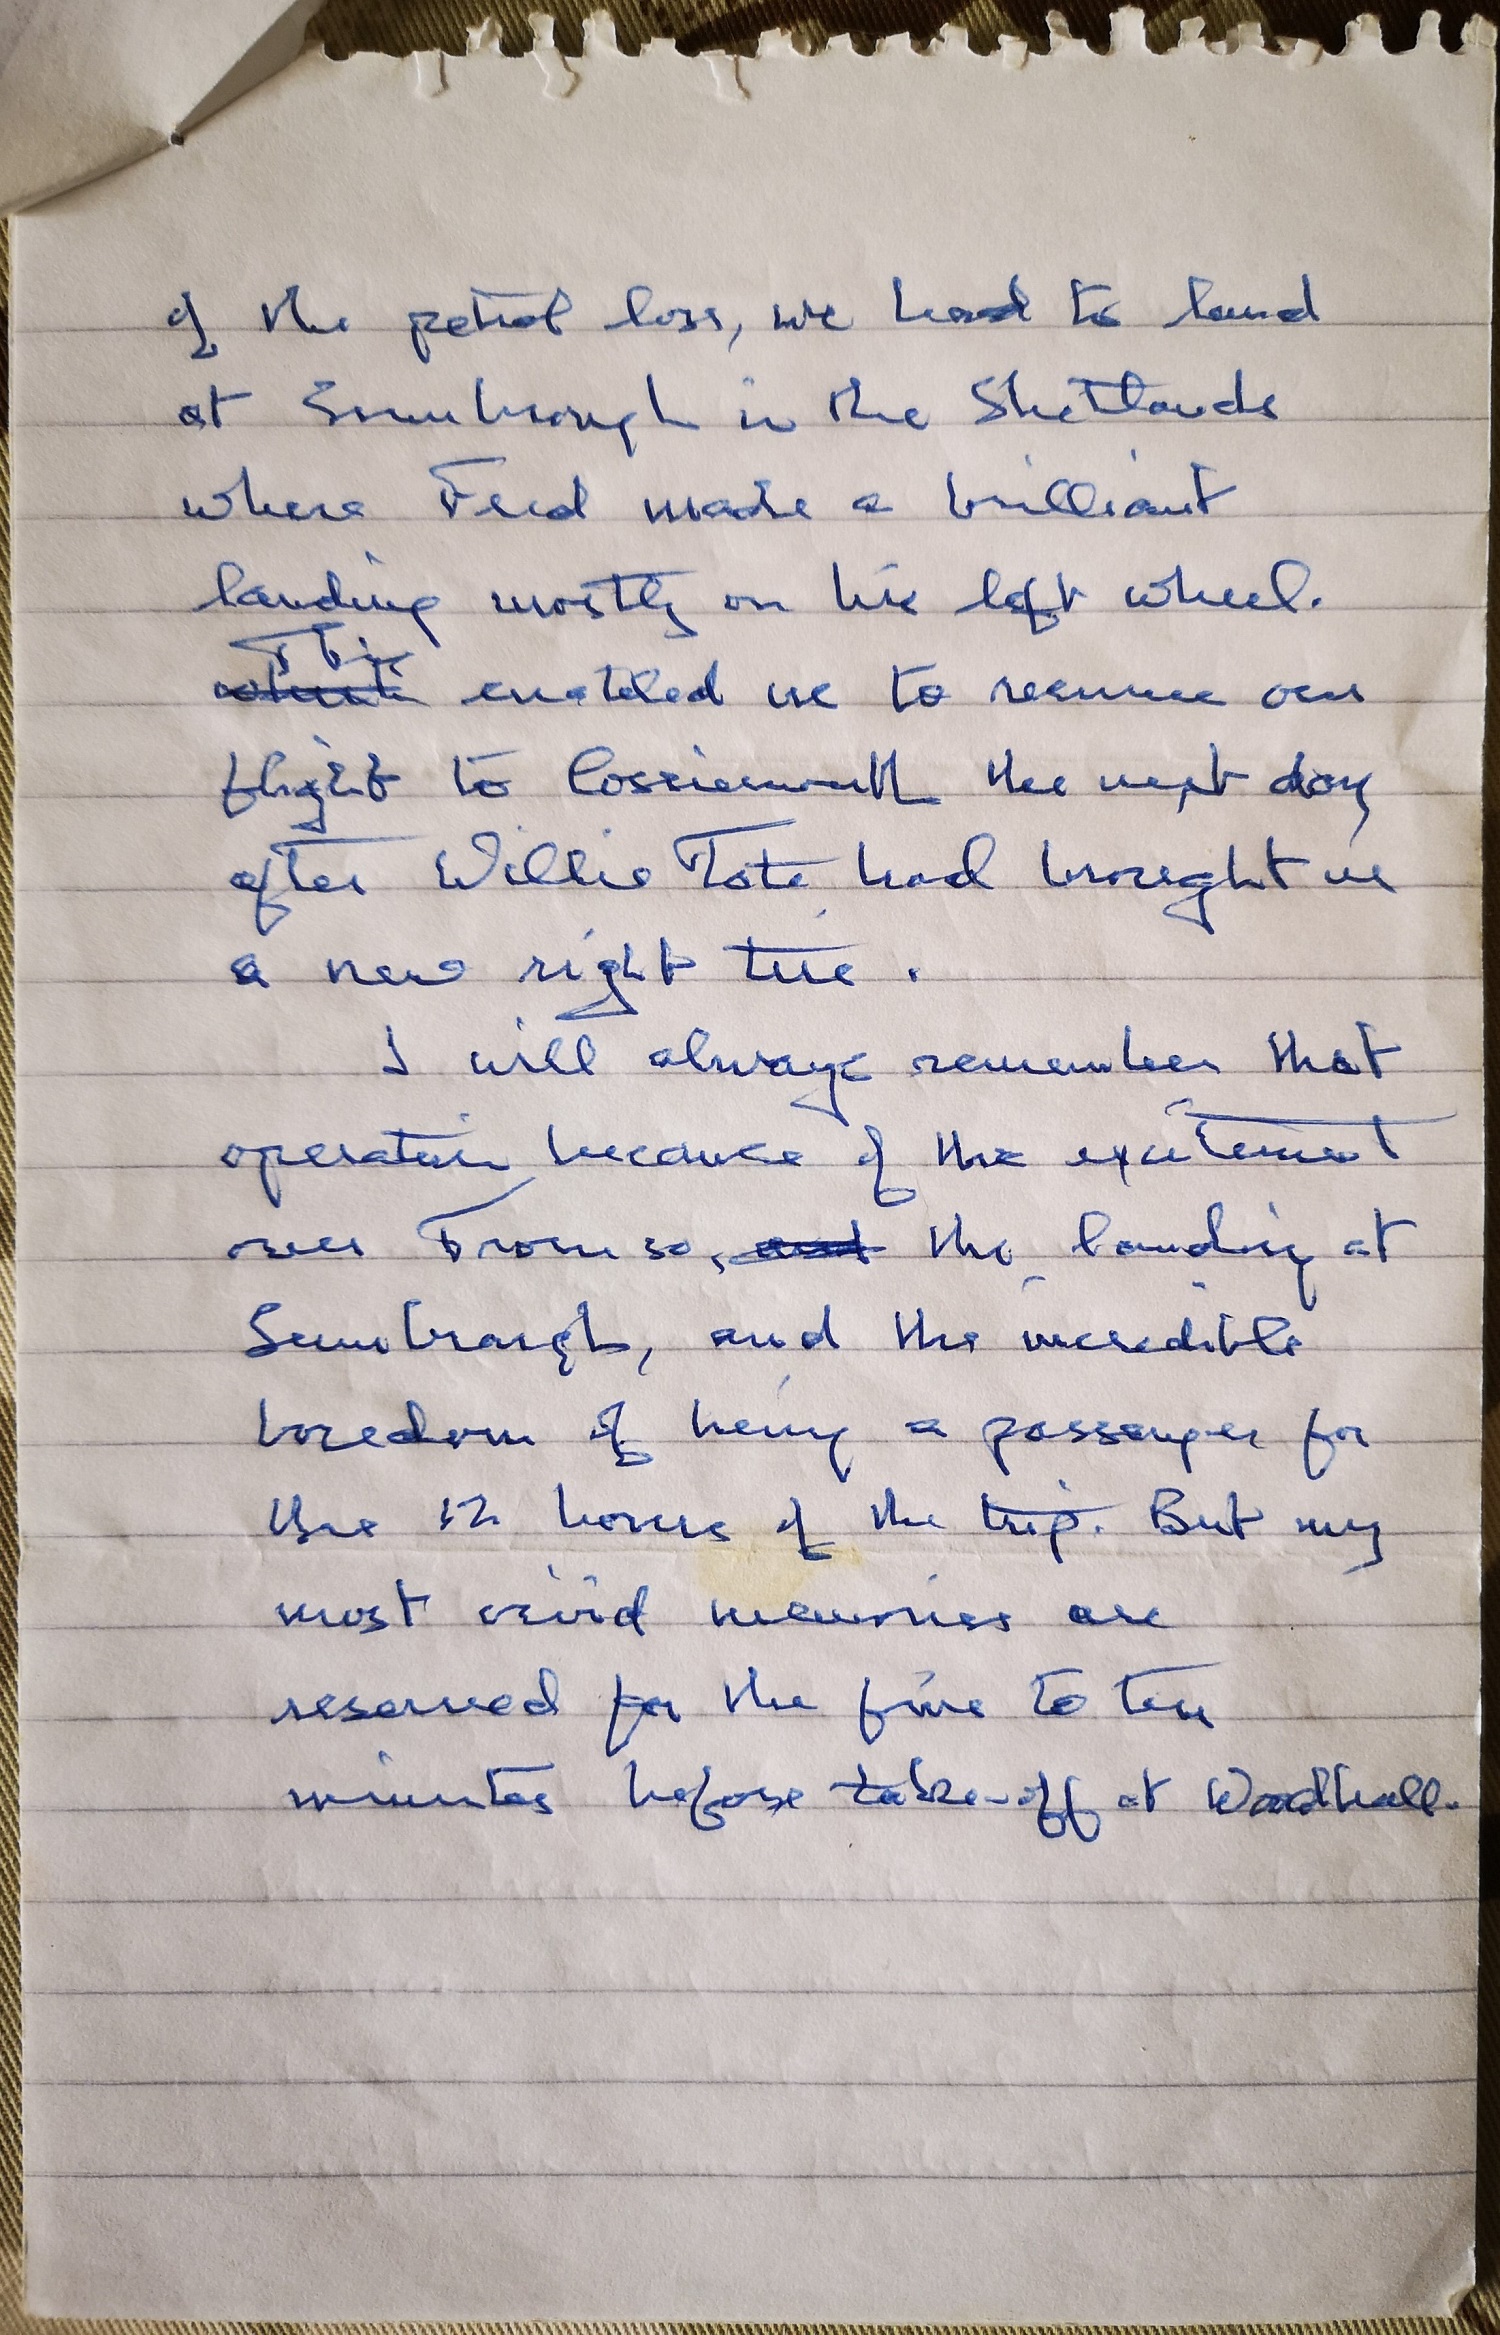 of the petrol loss, we had to land
at Sumburgh in the Shetlands
where Fred made a brilliant
landing mostly on his left wheel.
This
which enabled us to resume our
flight to Lossiemouth the next day
after Willie Tate had brought us
a new right tire.
I will always remember that
operation because of the excitement
over Tromso, and the landing at
Sumburgh, and the incredible
boredom of being a passenger for
the 12 hours of the trip. But my
most vivid memories are
reserved for the five to ten
minutes before take-off at Woodhall.